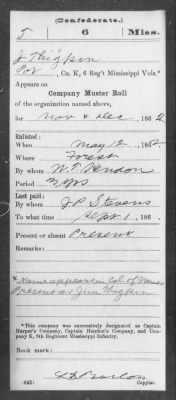 (Confederate.)
T 6 Miss.
J Thigpin
Pvt, Co. K, 6 Reg't Mississippi Vols.*
Appears on
Company Muster Roll
of the organization named above,
for Nov & Dec, 1862
Enlisted:
When May 12, 1862.
Where Forest
By whom W. T. Hendon
Period 3 yrs
Last paid:
By whom J P Stevens
To what time Sept 1, 186 .
Present or absent Present
Remarks:
* Name appears in Col of Names
Present as Jim Thigpin
*This company was successively designated as Captain
Harper's Company, Captain Hendon's Company, and Com-
pany K, 6th Regiment Mississippi Infantry.
Book mark:
(642) Copyist.